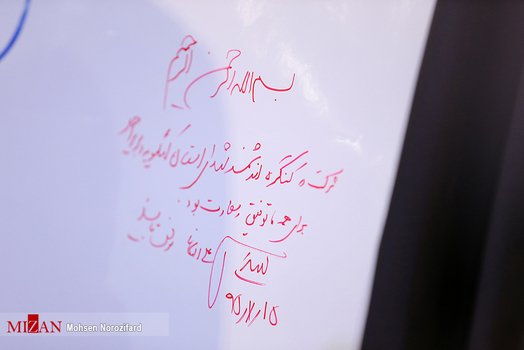 بسم الله الرحمن الرحیم
شرکت در کنگره ارزشمند شهدای استان کهگیلویه و بویراحمد
برای همه ما توفیق و سعادت بود.
۹۵/۷/۱۵
MIZAN Mohsen Norozifard